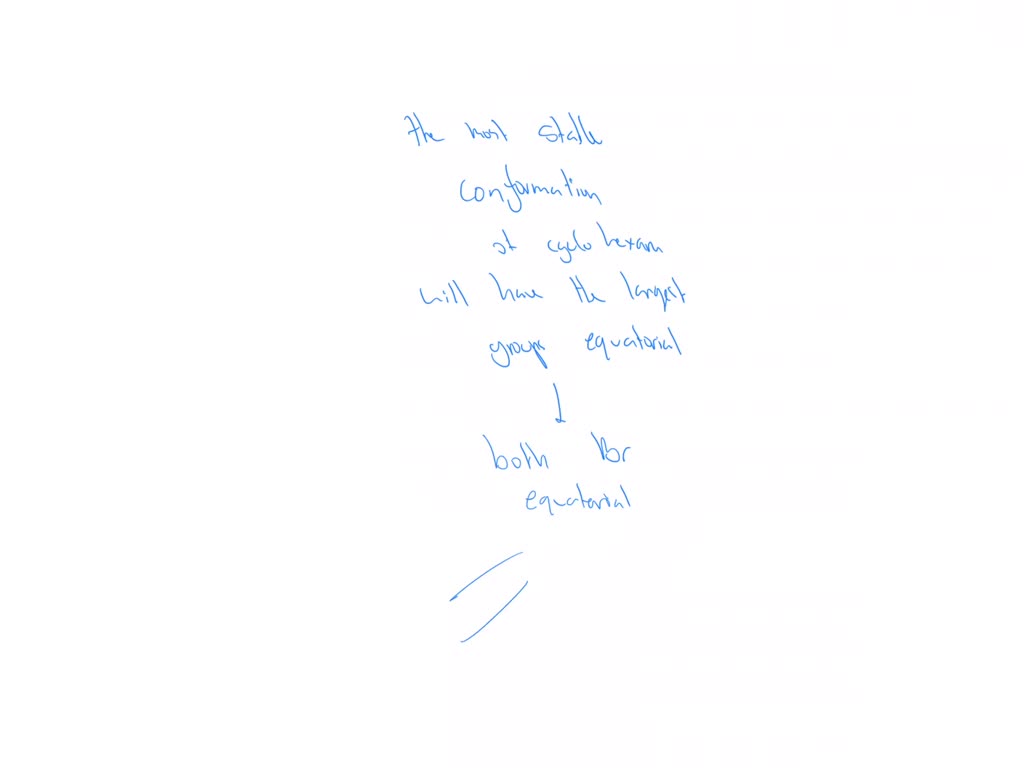 the most stable
conformation
of cyclohexane
will have the largest
groups equatorial
both Br
equatorial